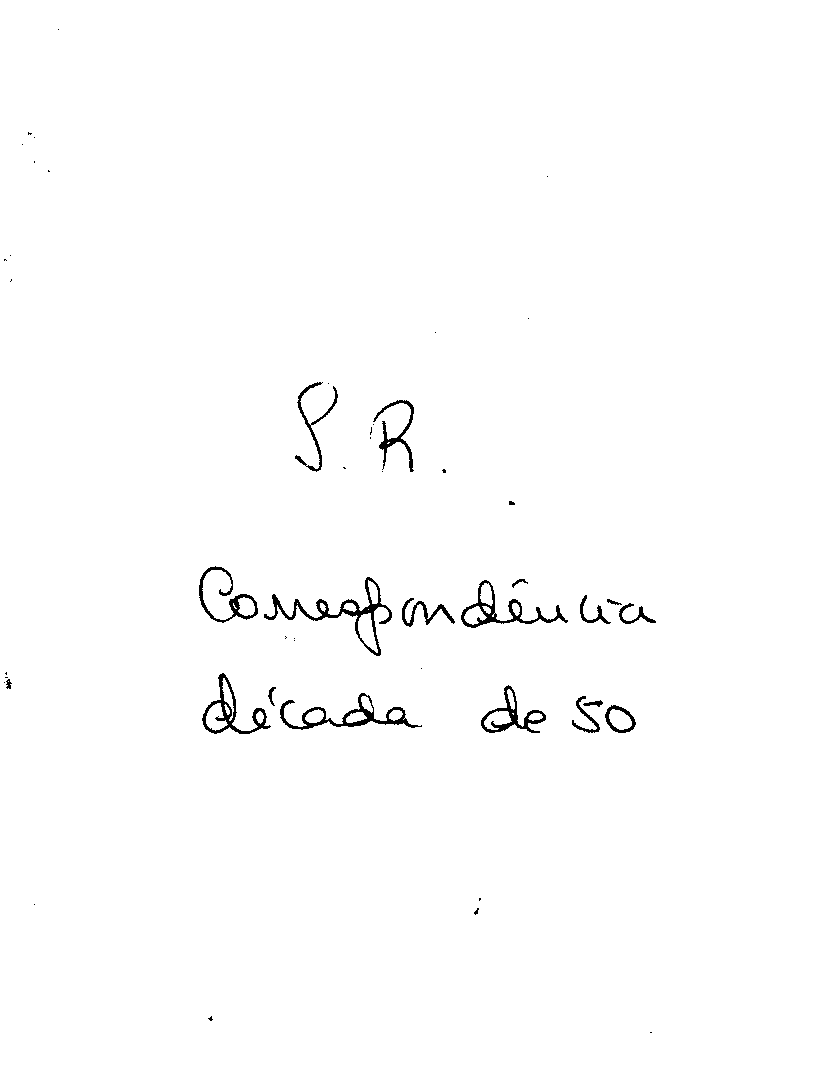 S. R.
Correspondência
década de 50